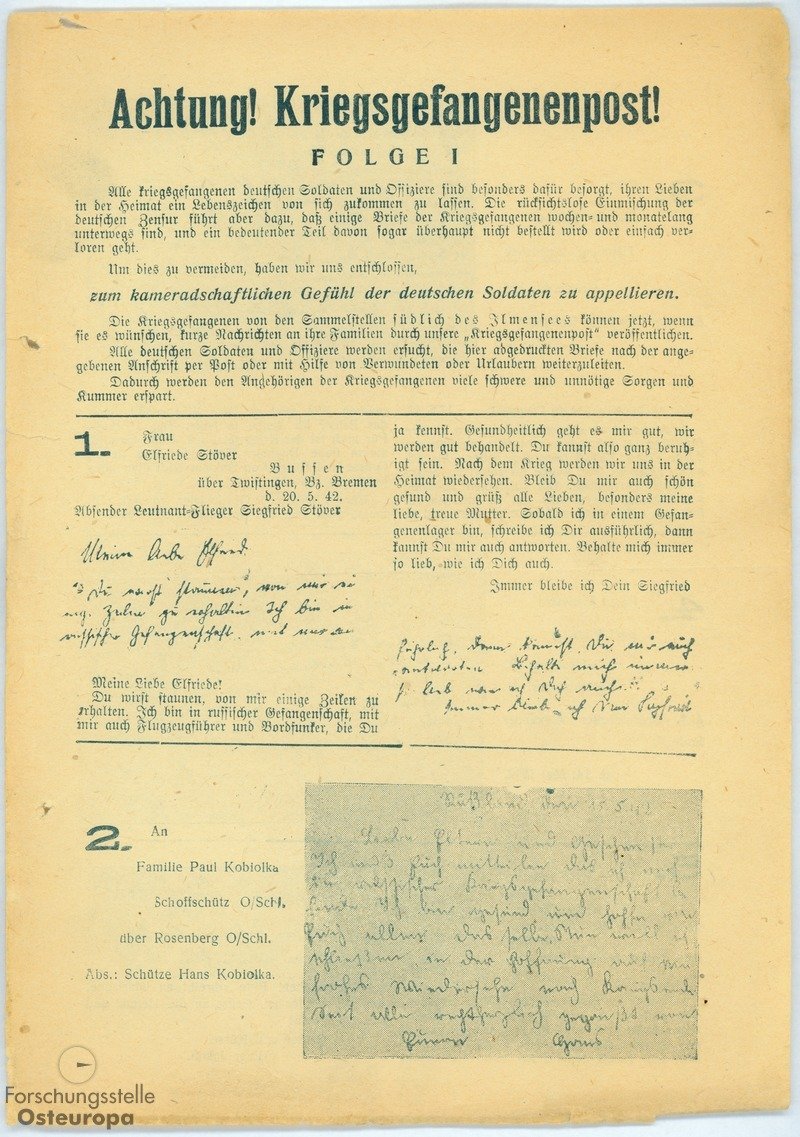 Achtung! Kriegsgefangenenpost!
FOLGE I
Alle kriegsgefangenen deutschen Soldaten und Offiziere sind besonders dafür besorgt, ihren Lieben
in der Heimat ein Lebenszeichen von sich zukommen zu lassen. Die rücksichtslose Einmischung der
deutschen Zensur führt aber dazu, daß einige Briefe der Kriegsgefangenen wochen- und monatelang
unterwegs sind, und ein bedeutender Teil davon sogar überhaupt nicht bestellt wird oder einfach ver-
loren geht.
Um dies zu vermeiden, haben wir uns entschlossen,
zum kameradschaftlichen Gefühl der deutschen Soldaten zu appellieren.
Die Kriegsgefangenen von den Sammelstellen südlich des Ilmensees können jetzt, wenn
sie es wünschen, kurze Nachrichten an ihre Familien durch unsere „Kriegsgefangenenpost" veröffentlichen.
Alle deutschen Soldaten und Offiziere werden ersucht, die hier abgedruckten Briefe nach der ange-
gebenen Anschrift per Post oder mit Hilfe von Verwundeten oder Urlaubern weiterzuleiten.
Dadurch werden den Angehörigen der Kriegsgefangenen viele schwere und unnötige Sorgen und
Kummer erspart.
1.
Frau
Elfriede Stöver
Bussen
über Twistingen, Bz. Bremen
d. 20. 5. 42.
Absender Leutnant-Flieger Siegfried Stöver
Meine liebe Elfriede
Du wirst staunen, von mir ei
nige Zeilen zu erhalten Ich bin in
russischer Gefangenschaft, mit mir
Meine Liebe Elfriede!
Du wirst staunen, von mir einige Zeilen zu
erhalten. Ich bin in russischer Gefangenschaft, mit
mir auch Flugzeugführer und Bordfunker, die Du
ja kennst. Gesundheitlich geht es mir gut, wir
werden gut behandelt. Du kannst also ganz beruh-
igt sein. Nach dem Krieg werden wir uns in der
Heimat wiedersehen. Bleib Du mir auch schön
gesund und grüß alle Lieben, besonders meine
liebe, treue Mutter. Sobald ich in einem Gefan-
genenlager bin, schreibe ich Dir ausführlich, dann
kannst Du mir auch antworten. Behalte mich immer
so lieb, wie ich Dich auch.
Immer bleibe ich Dein Siegfried
führlich, dann kannst Du mir auch
antworten Behalte mich immer
so lieb wie ich Dich auch.
Immer bleibe ich Dein Siegfried
2.
An
Familie Paul Kobiolka
Schoffschütz O/Schl.
über Rosenberg O/Schl.
Abs.: Schütze Hans Kobiolka.
Rußland den
Liebe Eltern und Geschwister
Ich muß Euch mitteilen das ich mich
in russischer Kriegsgefangenschaft be
finde Ich bin gesund und hoffe von
Euch allen das selbe. Nun will ich
schließen in der Hoffnung auf ein
frohes Wiedersehn nach Kriegsende
Seit alle rechtherzlich gegrüßt von
Euren Hans
Forschungsstelle
Osteuropa